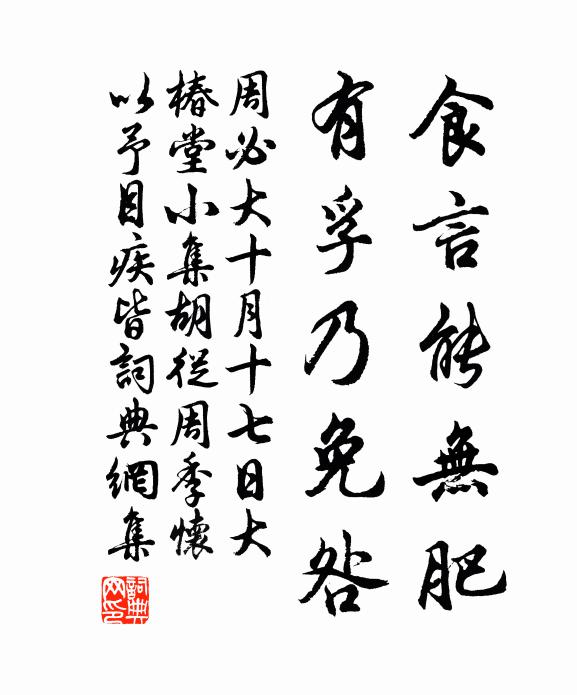 食言能無肥
有孚乃免咎
周必大十月十七日大
椿堂小集胡從周季懷
以予目疾皆詞典網集
詞典網印